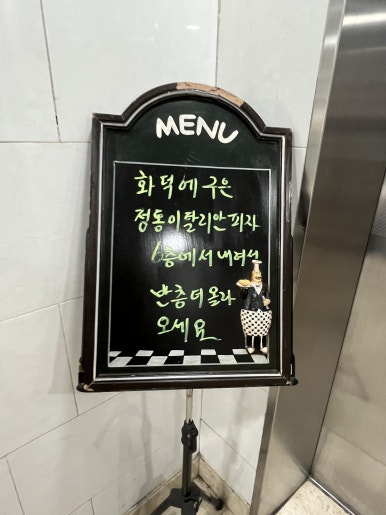 MENU
화덕에 구운
정통이탈리안피자
6층에서 내려서
반층 더 올라
오세요